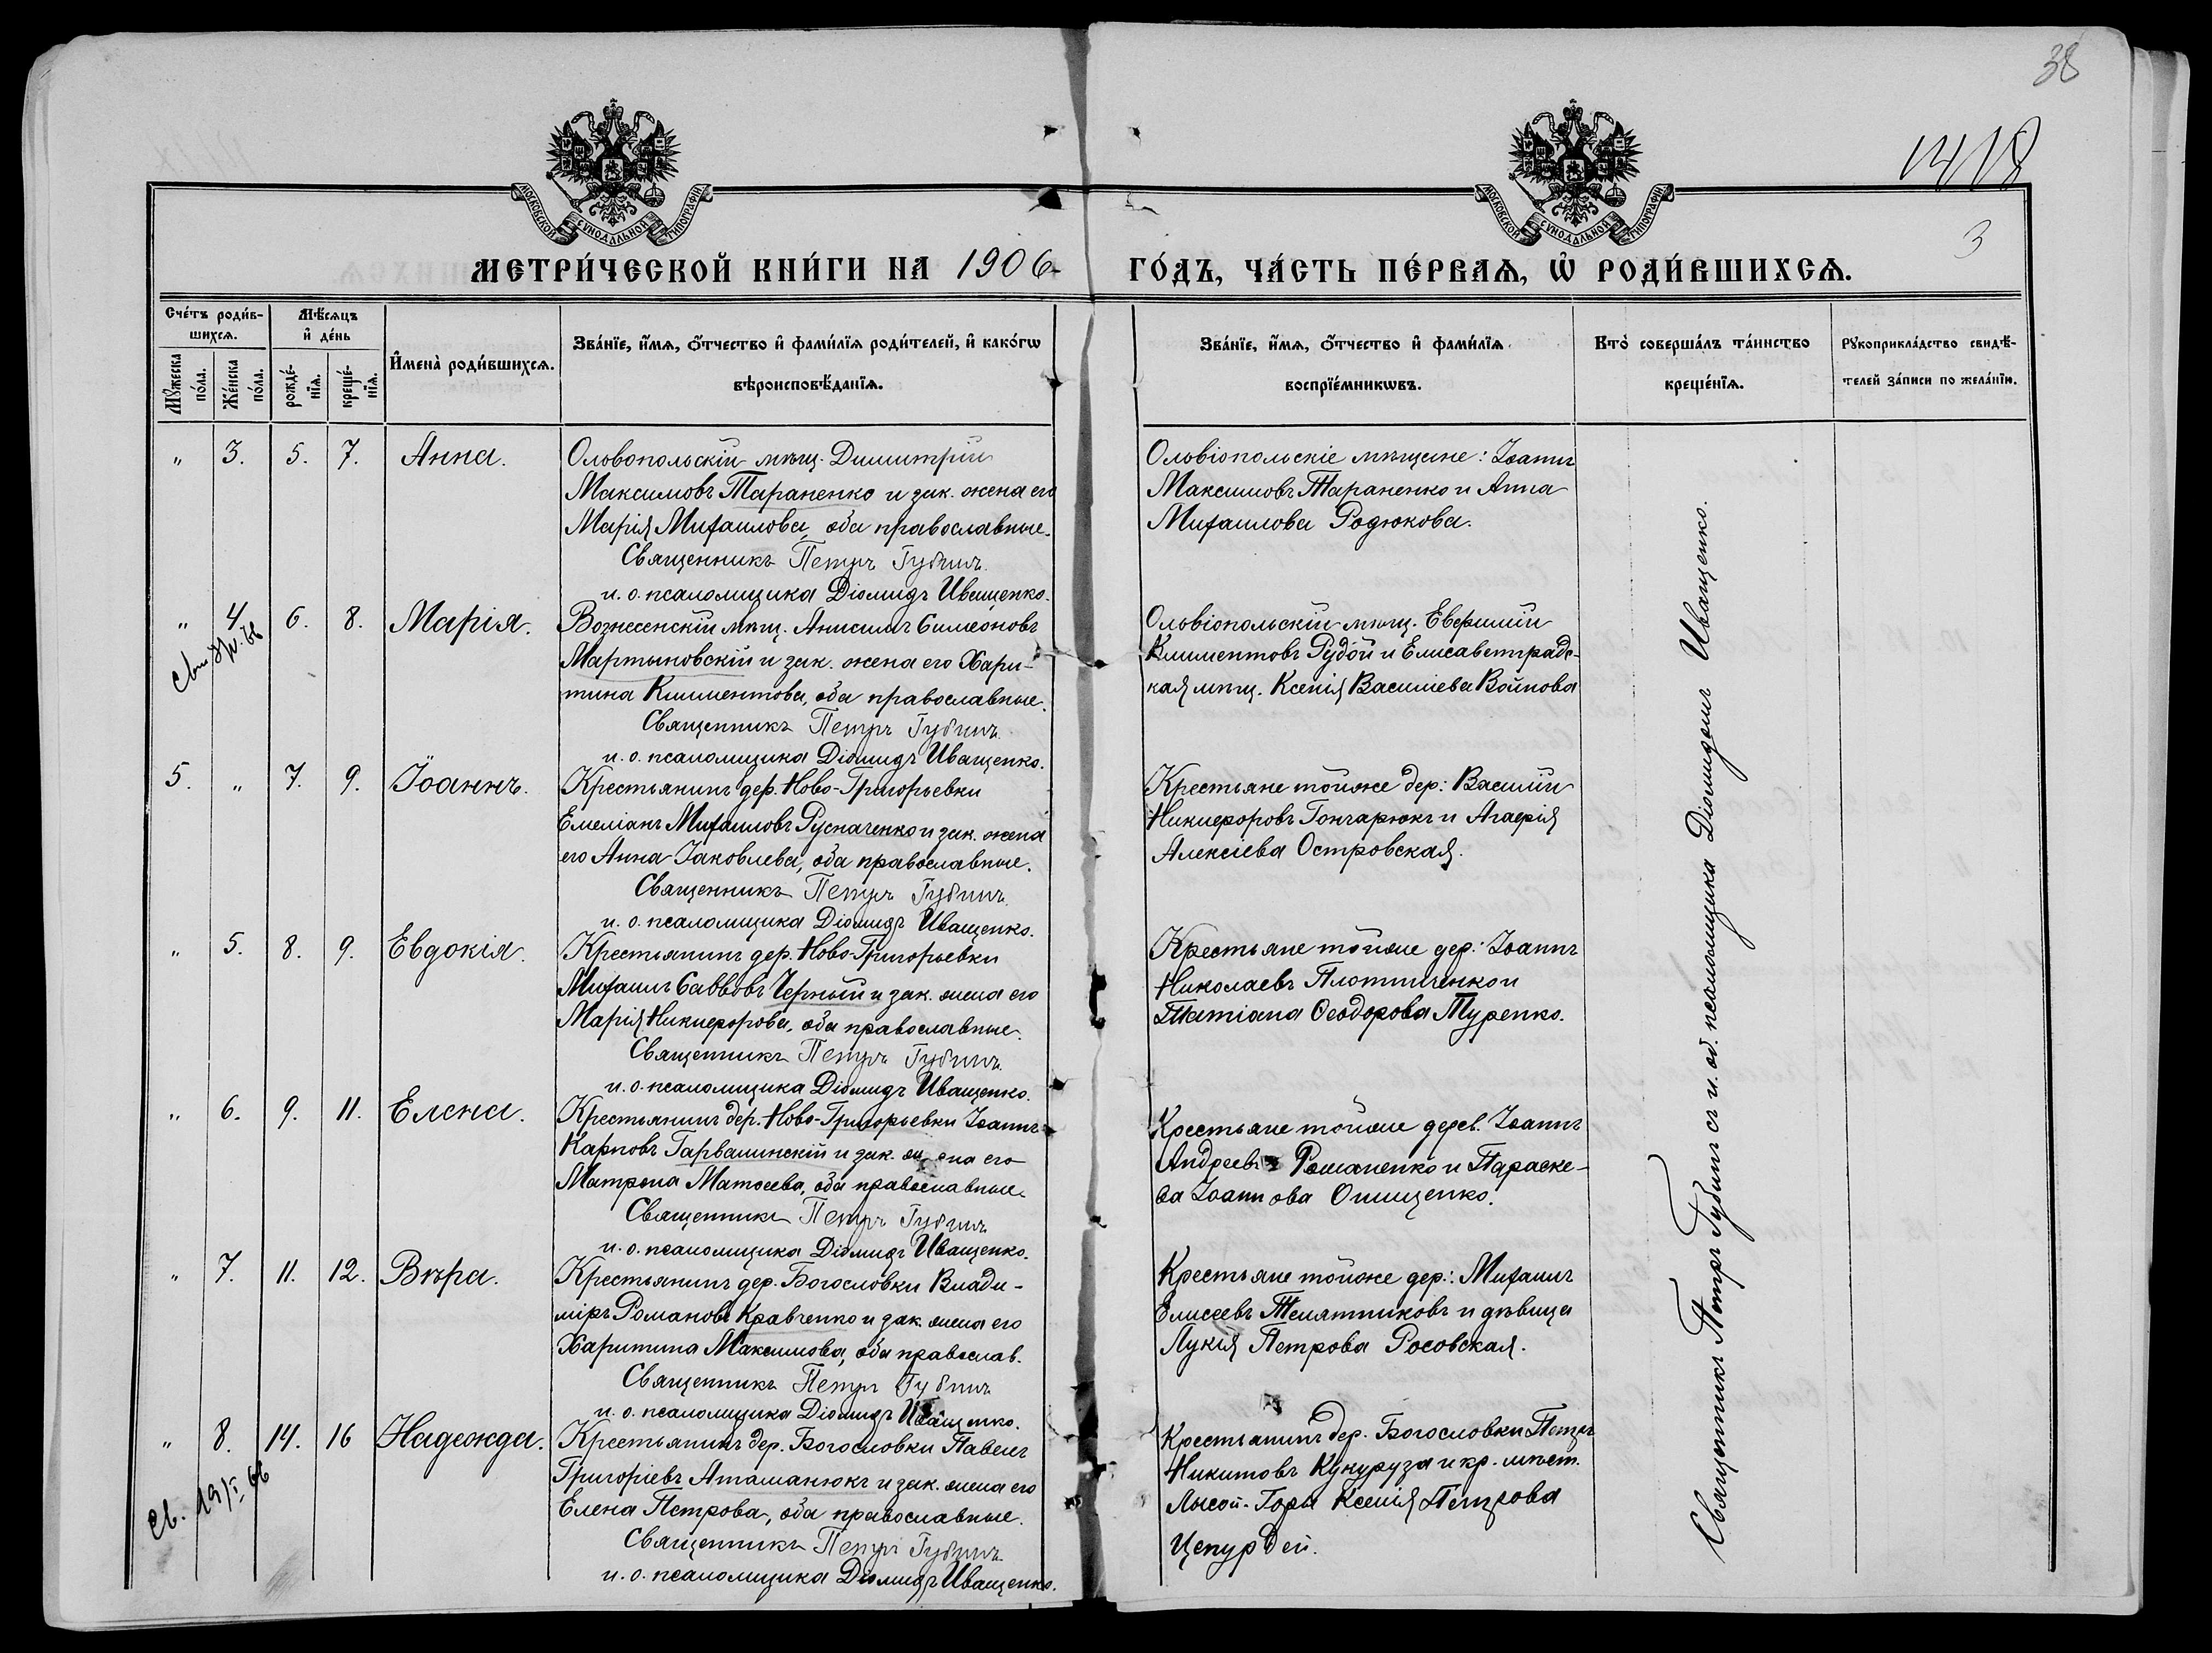 38
1418
3
МОСКОВСКОЙ СѴНОДАЛЬНОЙ ТИПОГРАФІИ
МОСКОВСКОЙ СѴНОДАЛЬНОЙ ТИПОГРАФІИ
МЕТРИ́ЧЕСКОЙ КНИ́ГИ НА 1906 ГО́ДЪ, ЧА́СТЬ ПЕ́РВАѦ, Ѡ҆ РОДИ́ВШИХСѦ.
Сче́тъ роди́в-
шихсѧ.
Мꙋ́жеска по́ла.
Же́нска по́ла.
Мѣ́сѧцъ
и҆ де́нь
рожде́-
нїѧ.
креще́-
нїѧ.
И҆мена̀ роди́вшихсѧ.
Зва́нїе, и҆́мѧ, ѻ҆́тчество и҆ фами́лїѧ роди́телей, и҆ како́гѡ
вѣроисповѣ́данїѧ.
Зва́нїе, и҆́мѧ, ѻ҆́тчество и҆ фами́лїѧ
воспрїе́мникѡвъ.
Кто̀ соверша́лъ та́инство
креще́нїѧ.
Рꙋкоприкла́дство свидѣ́-
телей за́писи по жела́нїю.
„ 3. 5. 7. Анна.
Оловопольскій мѣщ. Димитрій
Максимовъ Тараненко и зак. жена его
Марія Михаилова, оба православные.
Священникъ Петръ Губинъ.
и. о. псаломщика Діомидъ Иващенко.
Ольвіопольскіе мѣщане: Іоаннъ
Максимовъ Тараненко и Анна
Михаилова Родюкова.
„ 4. 6. 8. Марія.
Вознесенскій мѣщ. Анисимъ Симеоновъ
Мартыновскій и зак. жена его Хари-
тина Климентова, оба православные.
Священникъ Петръ Губинъ.
и. о. псаломщика Діомидъ Иващенко.
Ольвіопольскій мѣщ. Евфимій
Климентовъ Рудой и Елисаветградс-
кая мѣщ. Ксенія Василіева Войнова
5. „ 7. 9. Іоаннъ.
Крестьянинъ дер. Ново-Григорьевки
Емеліанъ Михаиловъ Русначенко и зак. жена
его Анна Іаковлева, оба православные.
Священникъ Петръ Губинъ.
и. о. псаломщика Діомидъ Иващенко.
Крестьяне тойже дер.: Василій
Никифоровъ Гончарюкъ и Агафія
Алексіева Островская.
„ 5. 8. 9. Евдокія.
Крестьянинъ дер. Ново-Григорьевки
Михаилъ Саввовъ Черный и зак. жена его
Марія Никифорова, оба православные.
Священникъ Петръ Губинъ.
и. о. псаломщика Діомидъ Иващенко.
Крестьяне тойже дер.: Іоаннъ
Николаевъ Плотниченко и
Татіана Ѳеодорова Туренко.
„ 6. 9. 11. Елена.
Крестьянинъ дер. Ново-Григорьевки Іоаннъ
Карповъ Гарвалинскій и зак. жена его
Матрона Матѳеева, оба православные.
Священникъ Петръ Губинъ
и. о. псаломщика Діомидъ Иващенко.
Крестьяне тойже дерев. Іоаннъ
Андреевъ Романенко и Параске-
ва Іоаннова Онищенко.
„ 7. 11. 12. Вѣра.
Крестьянинъ дер. Богословки Влади-
міръ Романовъ Кравченко и зак. жена его
Харитина Максимова, оба православ.
Священникъ Петръ Губинъ
и. о. псаломщика Діомидъ Иващенко.
Крестьяне тойже дер.: Михаилъ
Елисеевъ Телятниковъ и дѣвица
Лукія Петрова Росовская.
„ 8. 14. 16 Надежда.
Св. 19/I 66
Крестьянинъ дер. Богословки Павелъ
Григоріевъ Атаманюкъ и зак. жена его
Елена Петрова, оба православные.
Священникъ Петръ Губинъ
и. о. псаломщика Діомидъ Иващенко.
Крестьянинъ дер. Богословки Петръ
Никитовъ Кукуруза и кр. мѣст.
Лысой-Горы Ксенія Петрова
Цепурдей.
Священникъ Петръ Губинъ съ и. об. псаломщика Діомидомъ Иващенко.